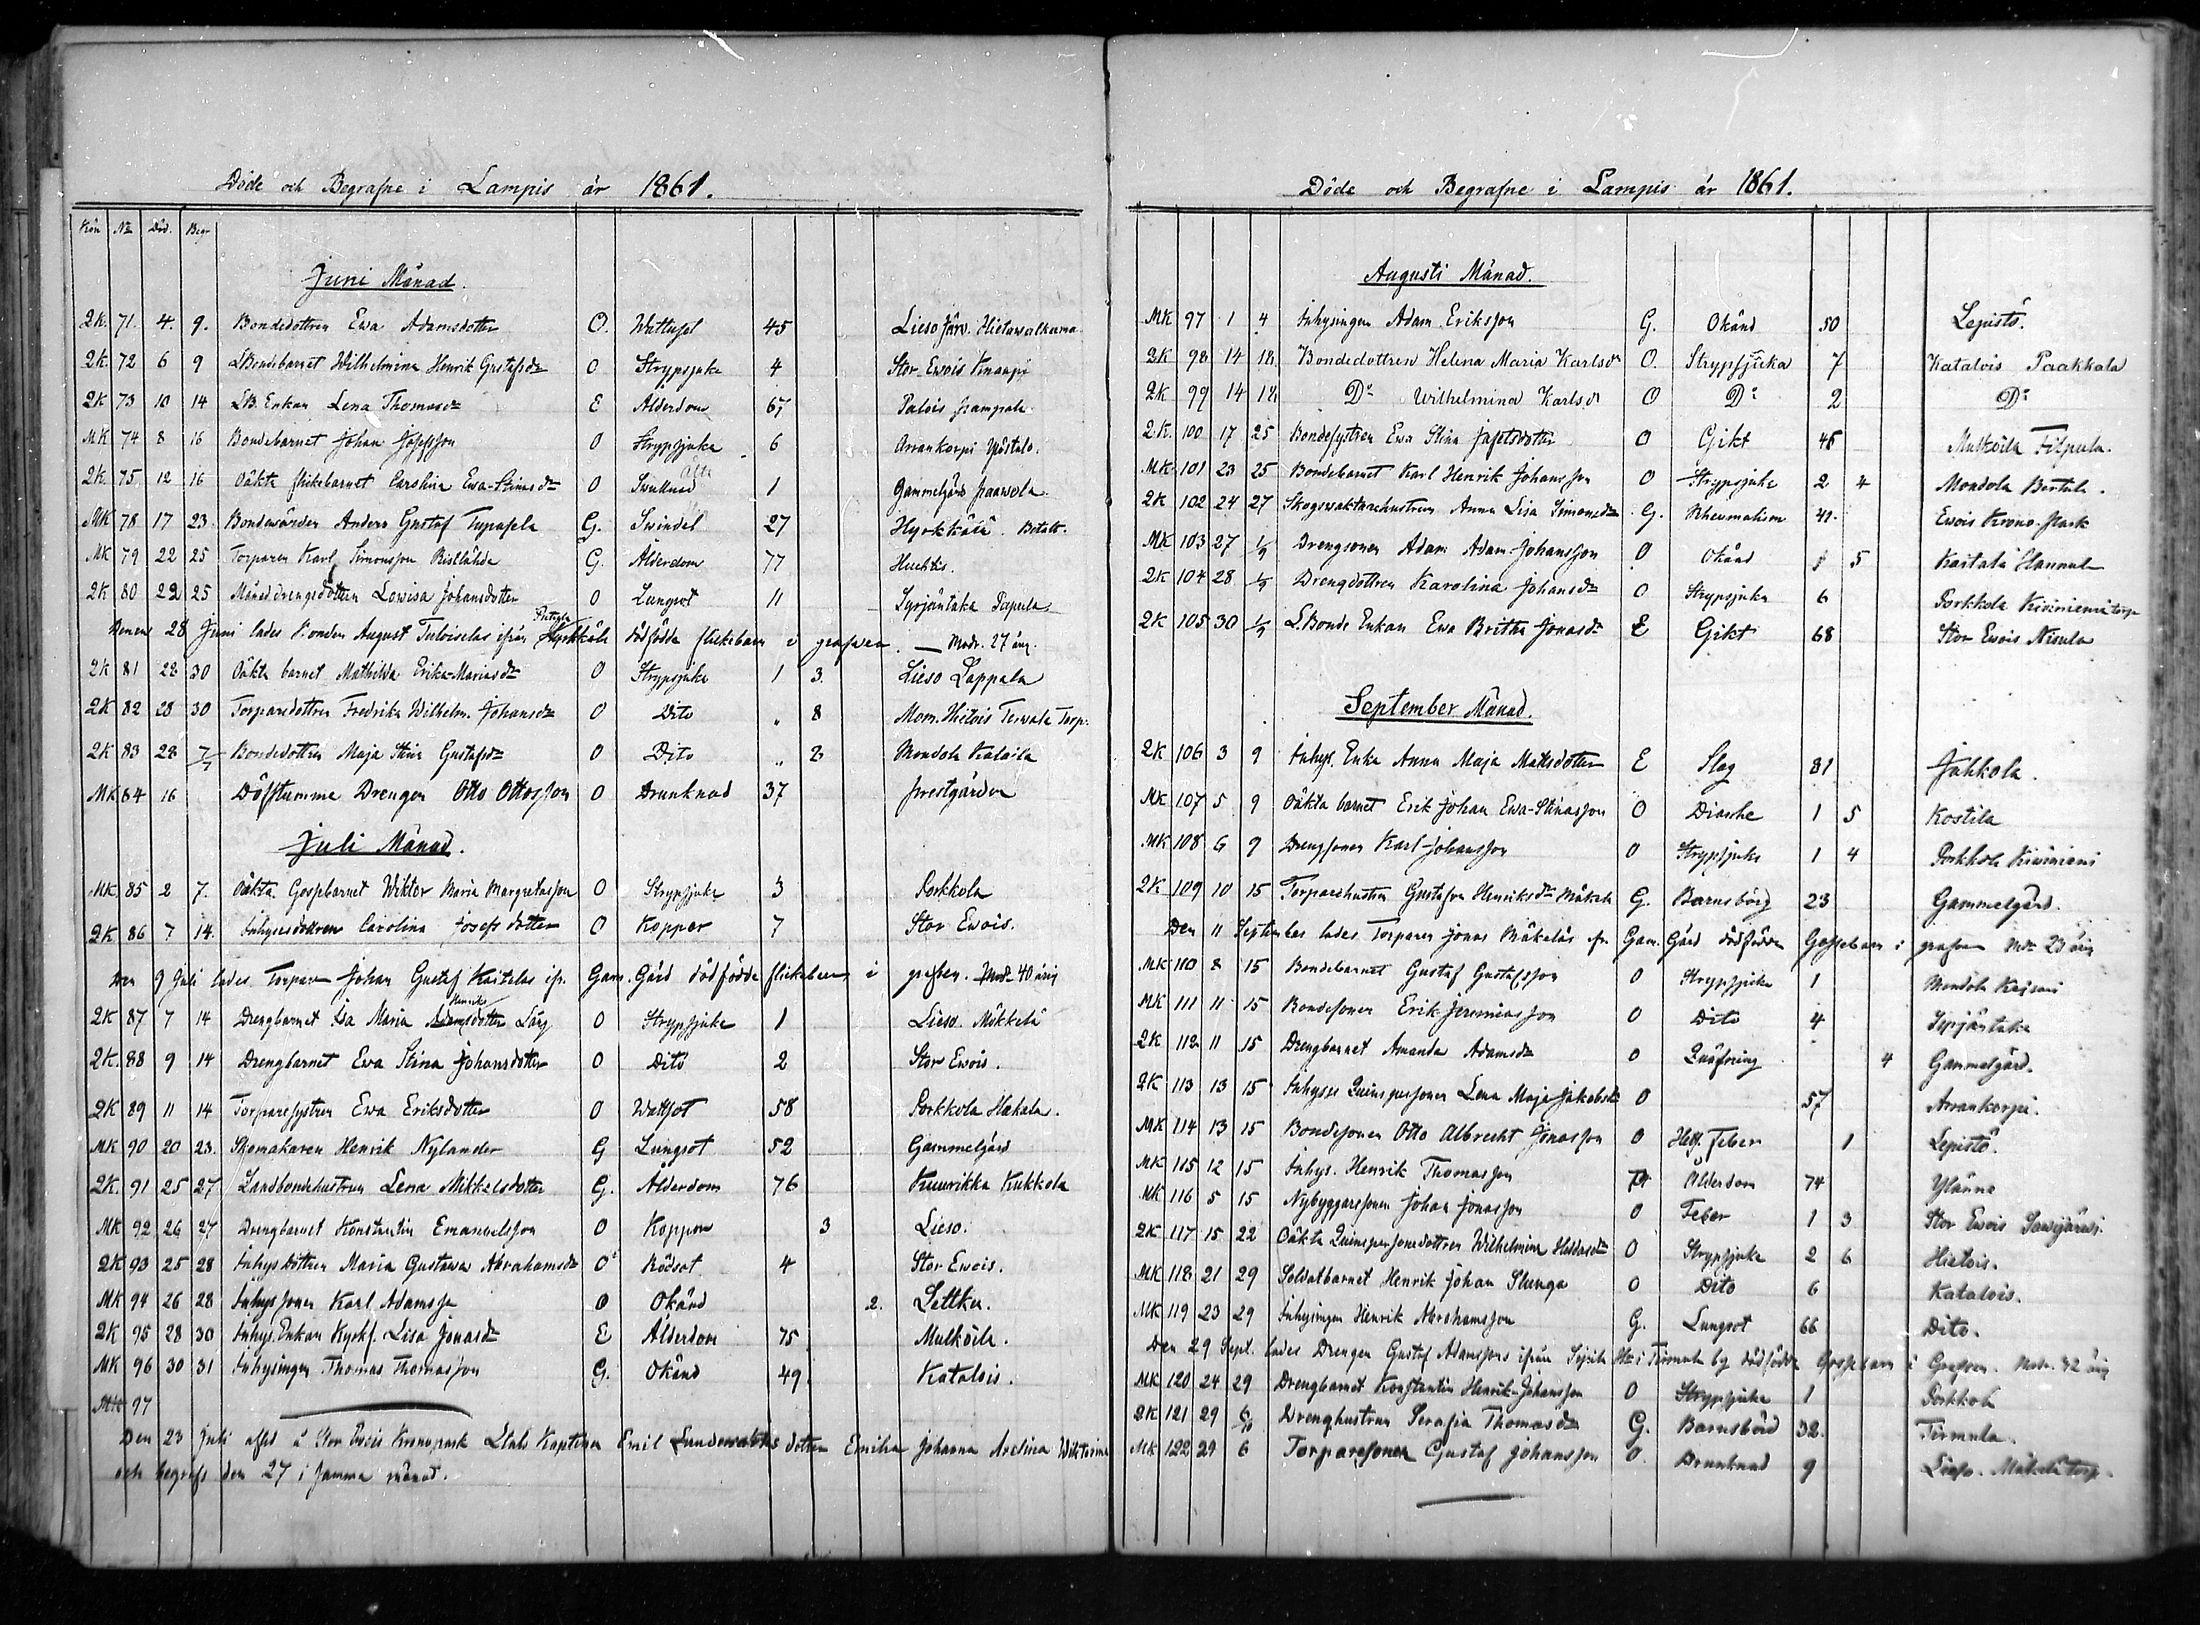 Döde och Begrafne i Lampis år 1861.
Kön No Död. Begr
Juni Månad.
QK. 71. 4. 9. Bondedottren Ewa Adamsdotter O. Wattusot 45 Lieso
QK. 72 6 9 LBondebarnet Wilhelmina Henrik Gustafsdr O Strypsjuka 4 Stor-Ewois
QK 73 10 14 LB. Enkan Lena Thomasdr E Ålderdom 67 Palois
MK 74 8 16 Bondebarnet Johan O Strypsjuka 6 Arrankorpi
QK. 75 12 16 Oäkta flickebarnet Carolina Ewa-Stinasdr O 1 Gammelgård
MK 78 17 23 Anders Gustaf G. 27
MK 79 22 25 Torparen Karl Simonsson G. Ålderdom 77 Huchtis.
QK 80 22 25 Lowisa Johansdotter O Lungsot 11 Syrjäntaka
28 Juni lades Bonden August ifrån dödfödda flickebarn i grafven. Modr. 27 årig.
QK 81 28 30 Oäkta barnet Mathilda Erika-Mariasdr O Strypsjuka 1 3. Lieso Lappala
QK 82 28 30 Torparedottren Fredrika Wilhelm. Johansdr O Dito " 8 Torp.
QK 83 28 7/7 Bondedottren Maja Stina Gustafsdr O Dito " 2
MK 84 16 Döfstumme Drengen Otto Ottosson O Drunknad 37 Prestgården
Juli Månad.
MK. 85 2 7. Oäkta Gossebarnet Wiktor Maria Margretasson O Strypsjuka 3 Porkkola
QK 86 7 14. Inhysesdottren Carolina Josefsdotter O Koppor 7 Stor Ewois.
Den 9 Juli lades Torparen Johan Gustaf Kaitalas ifr. Gam. Gård dödfödde flickebarn i grafven. Modr 40 årig
QK 87 7 14 Drengbarnet Ida Maria Adamsdotter Henriks O Strypsjuka 1 Lieso. Mikkelä
QK. 88 9 14 Drengbarnet Ewa Stina Johansdotter O Dito 2 Stor Ewois.
QK 89 11 14 Torparesystren Ewa Eriksdotter O Wattsot 58 Porkkola Hakala.
MK 90 20 23. Skomakaren Henrik Nylander G Lungsot 52 Gammelgård
QK. 91 25 27 Landbondehustrun Lena Mikkelsdotter G. Ålderdom 76 Kuurikka Kukkola
MK 92 26 27 Drengbarnet Konstantin Emanuelsson O Koppor 3 Lieso.
QK 93 25 28 Inhysdottren Maria Gustawa Abrahamsdr O Rödsot 4 Stor Ewois.
MK 94 26 28 Inhyssonen Karl Adamsson O Okänd 2.
QK 95 28 30 Inhys. Enkan Lisa Jonasdr E Ålderdom 75 Mulkoila.
MK 96 30 31 Inhysingen Thomas Thomasson G. Okänd 49. Katalois.
MK 97
Den 23 Juli afled å Stor Ewois Kronopark Stabs Kapten Emil dotter Emilia Johanna
och begrofs den 27 i samma månad.
Döde och Begrafne i Lampis år 1861.
Augusti Månad.
MK 97 1 4 Inhysingen Adam Eriksson G. Okänd 50 Lepistö.
QK 98 14 18. Bondedottren Helena Maria Karlsdr O. Strypsjuka 7 Katalois Paakkala
QK 99 14 18 Do Wilhelmina Karlsdr O Do 2 Do
QK. 100 17 25 Bondesystren Ewa Stina O Gikt 45 Mulkoila
MK 101 23 25 Bondebarnet Karl Henrik Johansson O Strypsjuka 2 4
QK 102 24 27 Skogswaktarehustrun Anna Lisa Simonsdr G. Rheumatism 41. Ewois Krono-park
MK 103 27 1/9 Drengsonen Adam Adam-Johansson O Okänd 5
QK 104 28 1/9 Drengdottren Karolina Johansdr O Strypsjuka 6 Porkkola Kiviniemi torp
QK 105 30 1/9 L.Bonde Enkan Ewa Britha Jonasdr E Gikt 68 Stor Ewois
September Månad.
QK 106 3 9 Inhys. Enka Anna Maja Mattsdotter E Slag 81 Jahkola.
MK 107 5 9 Oäkta barnet Erik Johan Ewa-Stinasson O 1 5 Kostila
MK 108 6 9 Drengsonen Karl Johansson O Strypsjuka 1 4 Porkkola Kiviniemi
QK 109 10 15 Torparehustrun Gustafva Henriksdr Mäkelä G. Barnsbörd 23 Gammelgård.
Den 11 September lades Torparen Jonas Mäkeläs fr. Gam. Gård dödfödde Gossebarn i grafven Mdr 23 årig
MK 110 8 15 Bondebarnet Gustaf Gustafsson O Strypsjuka 1
MK 111 11 15 Bondesonen Erik Jeremiasson O Dito 4 Syrjäntaka
QK 112 11 15 Drengbarnet Amanda Adamsdr O Qwäfning 4 Gammelgård.
QK 113 13 15 Inhyses Qwinspersonen Lena Maja Jakobsdr O 57 Arrankorpi.
MK 114 13 15 Bondesonen Otto Albrecht Jonasson O Feber 1 Lepistö.
MK 115 12 15 Inhys. Henrik Thomasson Ålderdom 74 Ylänne
MK 116 5 15 Nybyggaresonen Johan Jonasson O Feber 1 3 Stor Ewois
QK 117 15 22 Oäkta Qwinspersonedottren Wilhelmina O Strypsjuka 2 6 Hietois.
MK 118 21 29 Soldatbarnet Henrik Johan Slunga O Dito 6 Katalois.
MK 119 23 29 Inhysingen Henrik Abrahamsson G. Lungsot 66 Dito.
Den 29 Sept. lades Drengen Gustaf Adamssons ifrån by dödfödde Gossebarn i Grafven. Modr. 32 årig
MK 120 24 29 Drengbarnet Konstantin Henrik-Johansson O Strypsjuka 1 Porkkola
QK 121 29 6/10 Drenghustrun Serafia Thomasdr G. Barnsbörd 32. Tirmula.
MK 122 29 6 Torparesonen Gustaf Johansson O. Drunknad 9 Lieso. Mäkelä torp.